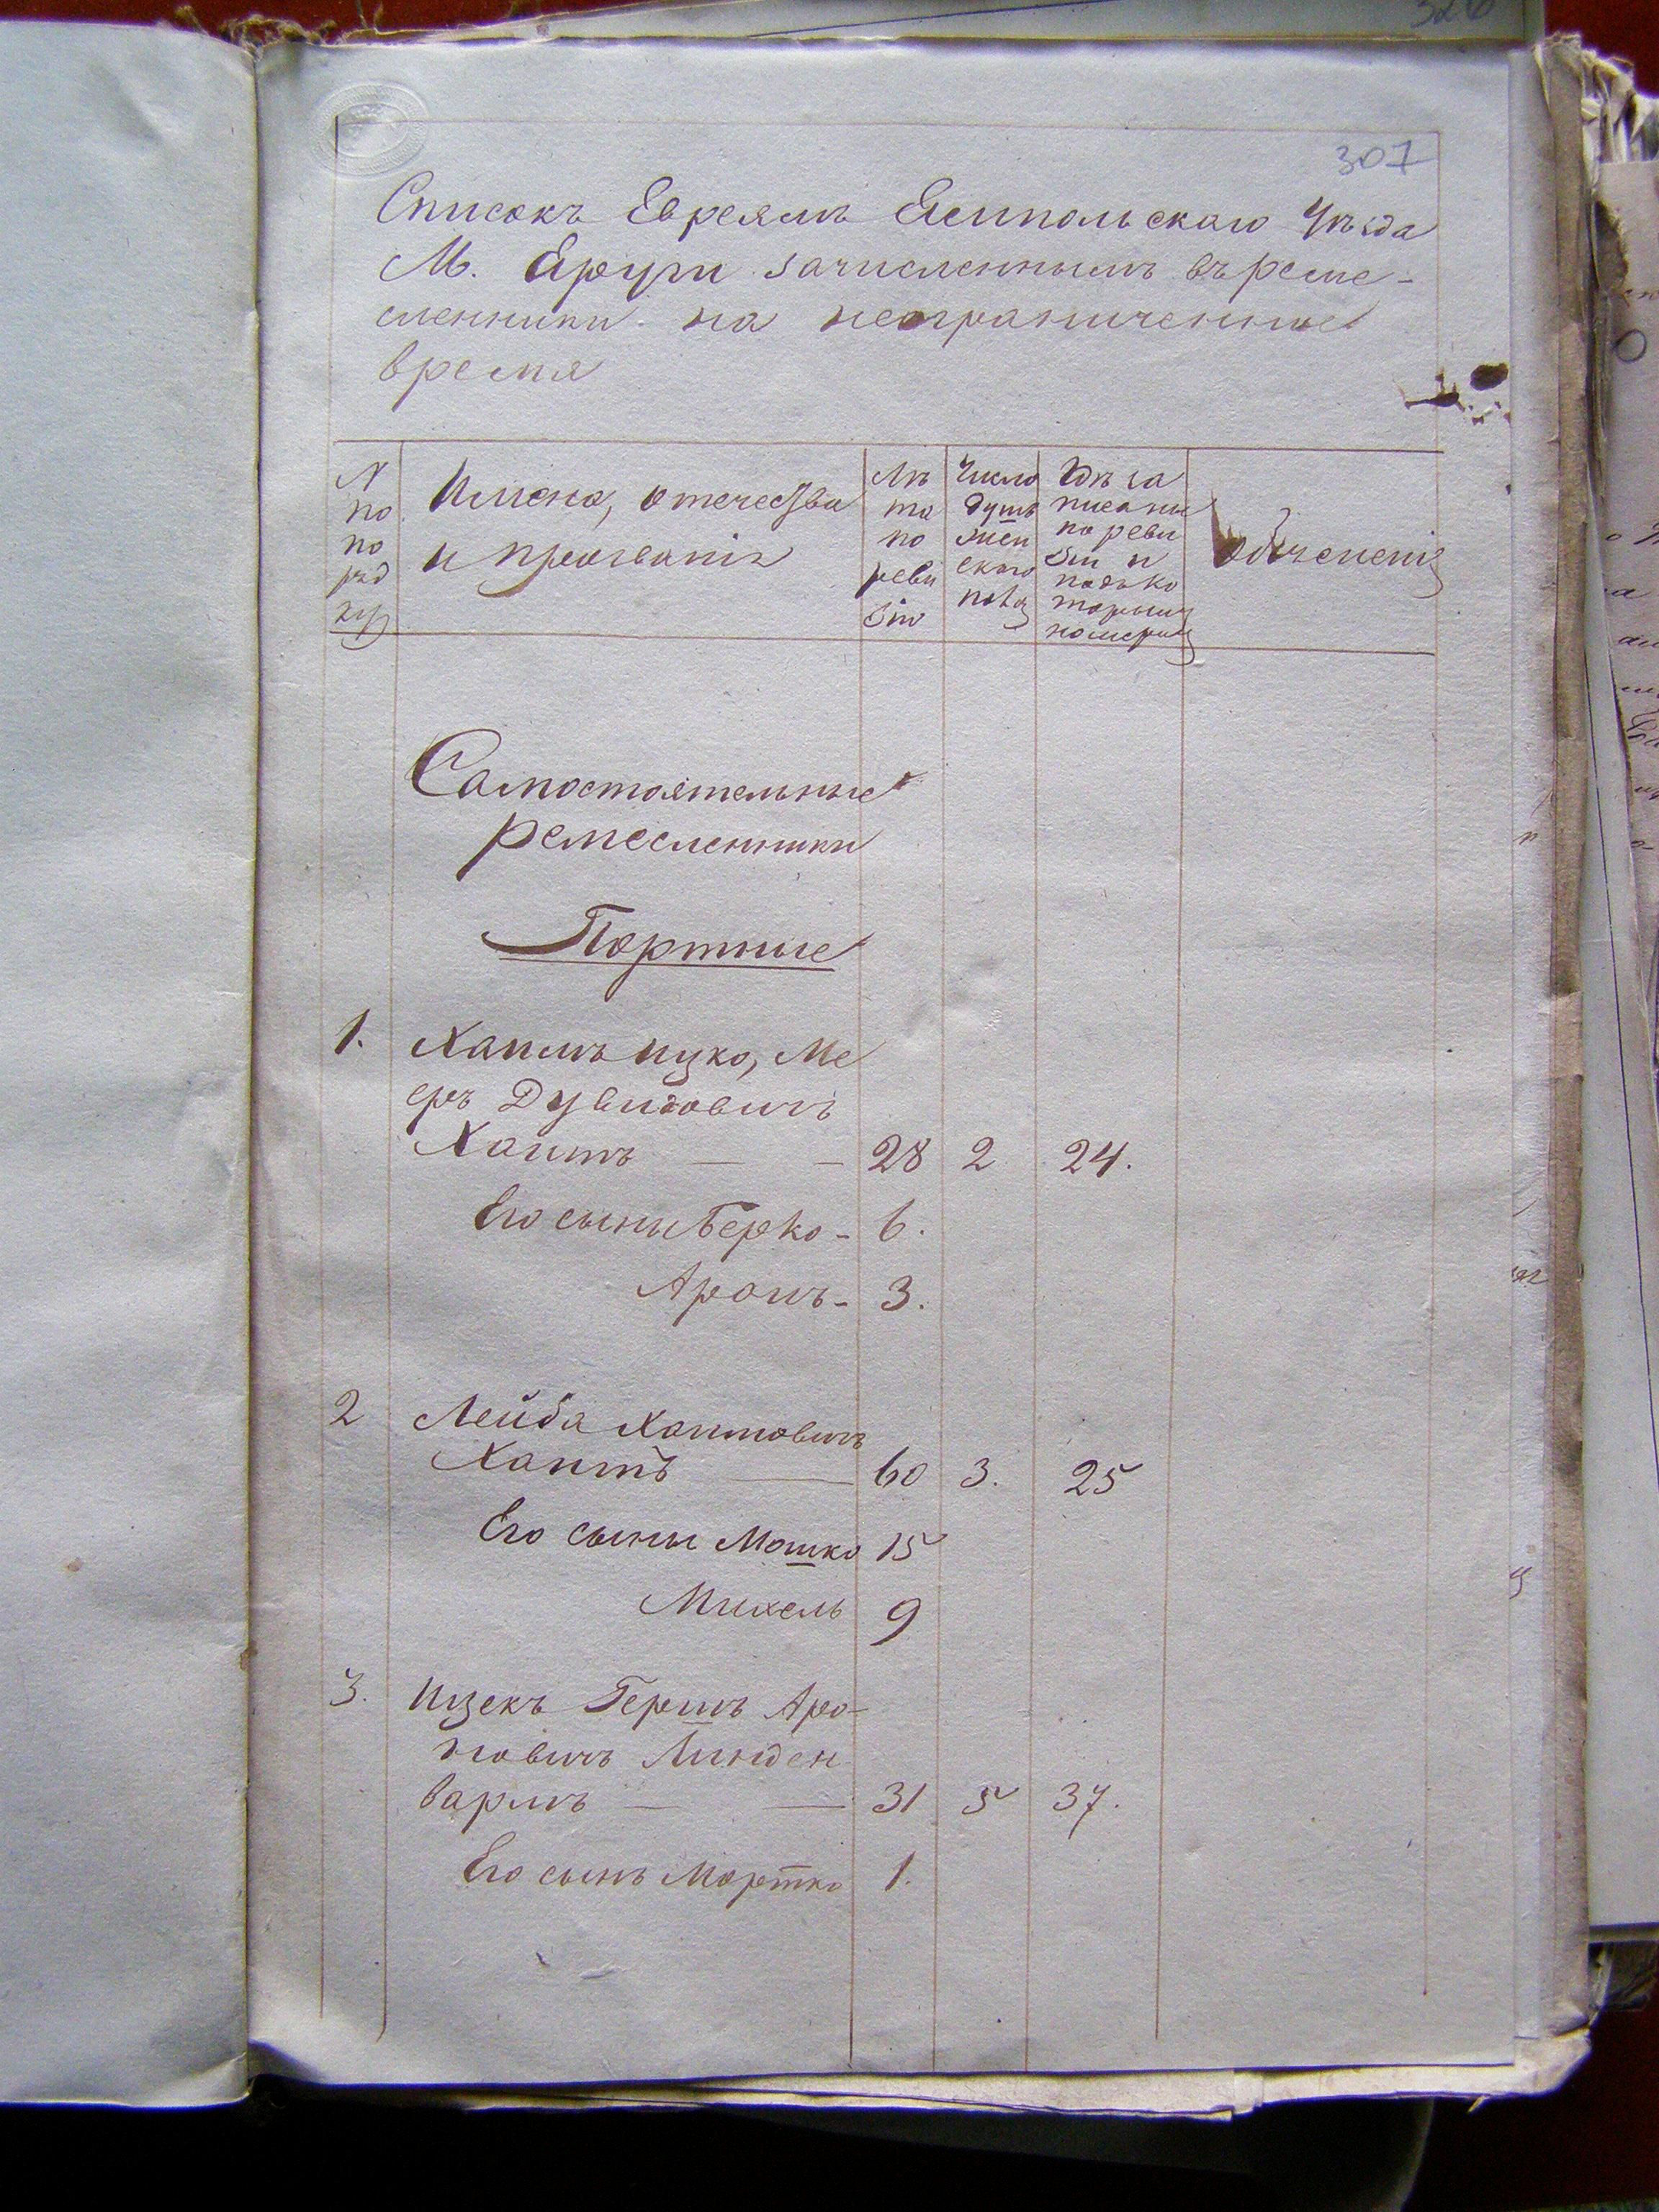 307
Списокъ Евреямъ Ямпольскаго Уѣзда
М. Яруги зачисленнымъ въ реме-
сленники на неограниченное
время
N по по ряд ку
Имена, отечества и прозванія
Лѣ та по реви зіи
Число душъ жен скаго пола
Гдѣ за писаны по реви зіи и подъ ко торымъ номеромъ
Объясненія
Самостоятельные
ремесленники
Портные
1. Хаимъ Ицко, Ме
еръ Дувидовичъ
Хаимъ — — 28 2 24.
Его сыны Берко - 6.
Аронъ - 3.
2 Лейба Хаимовичъ
Хаимъ — 60 3. 25
Его сыны Мошко 15
Михель 9
3. Ицекъ Гершъ Аро-
новичъ Линден
вармъ — — 31 5 37.
Его сынъ Мортко 1.